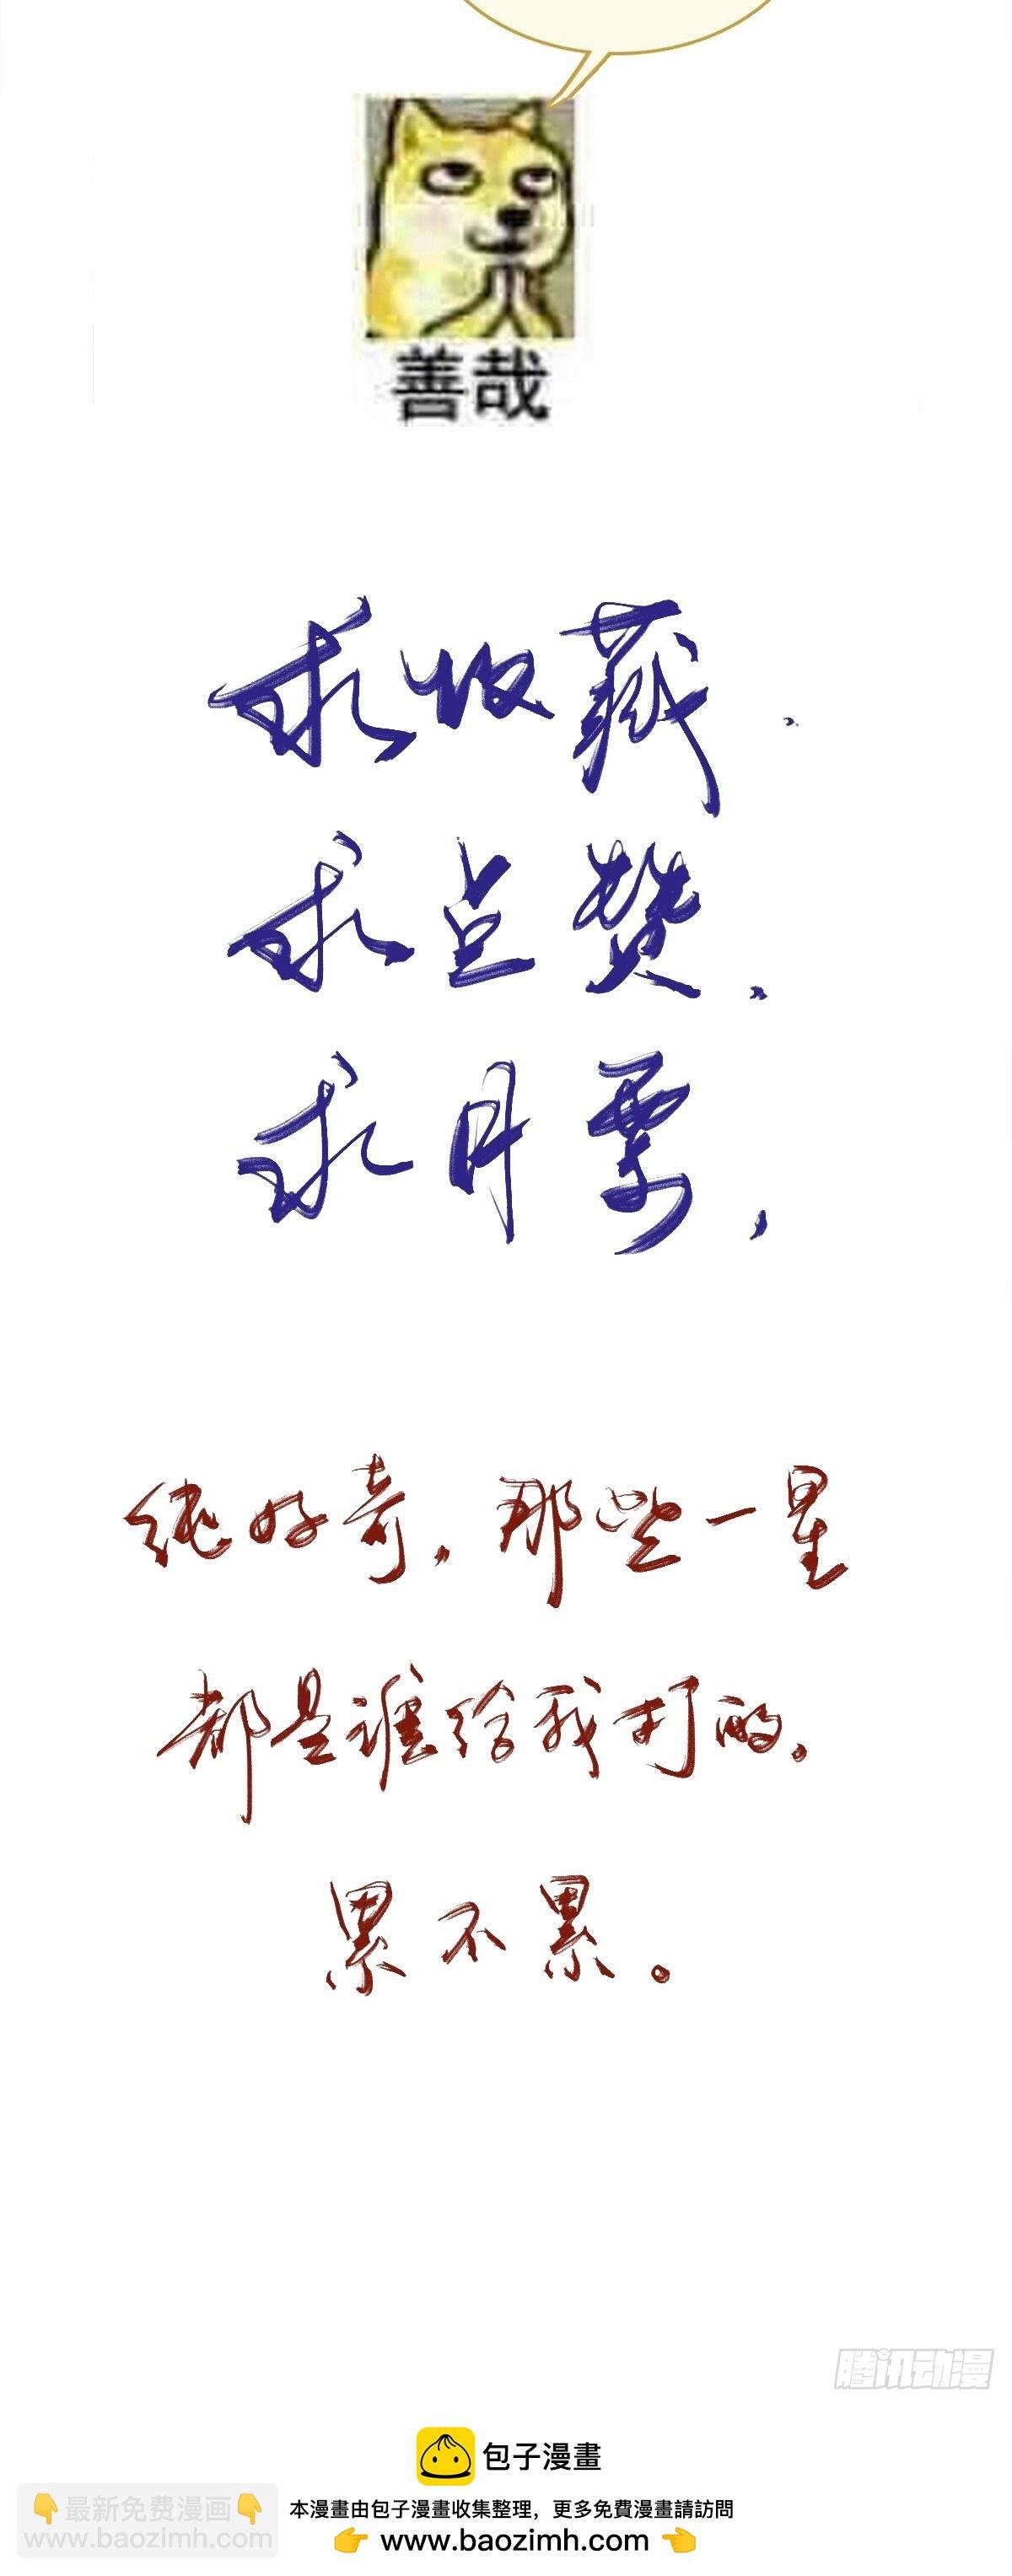 善哉
求收藏.
求点赞.
求月票,
纯好奇,那些一星
都是谁给我打的。
累不累。
腾讯动漫
包子漫畫
👇最新免费漫画👇
www.baozimh.com
本漫畫由包子漫畫收集整理，更多免費漫畫請訪問
👉 www.baozimh.com 👈